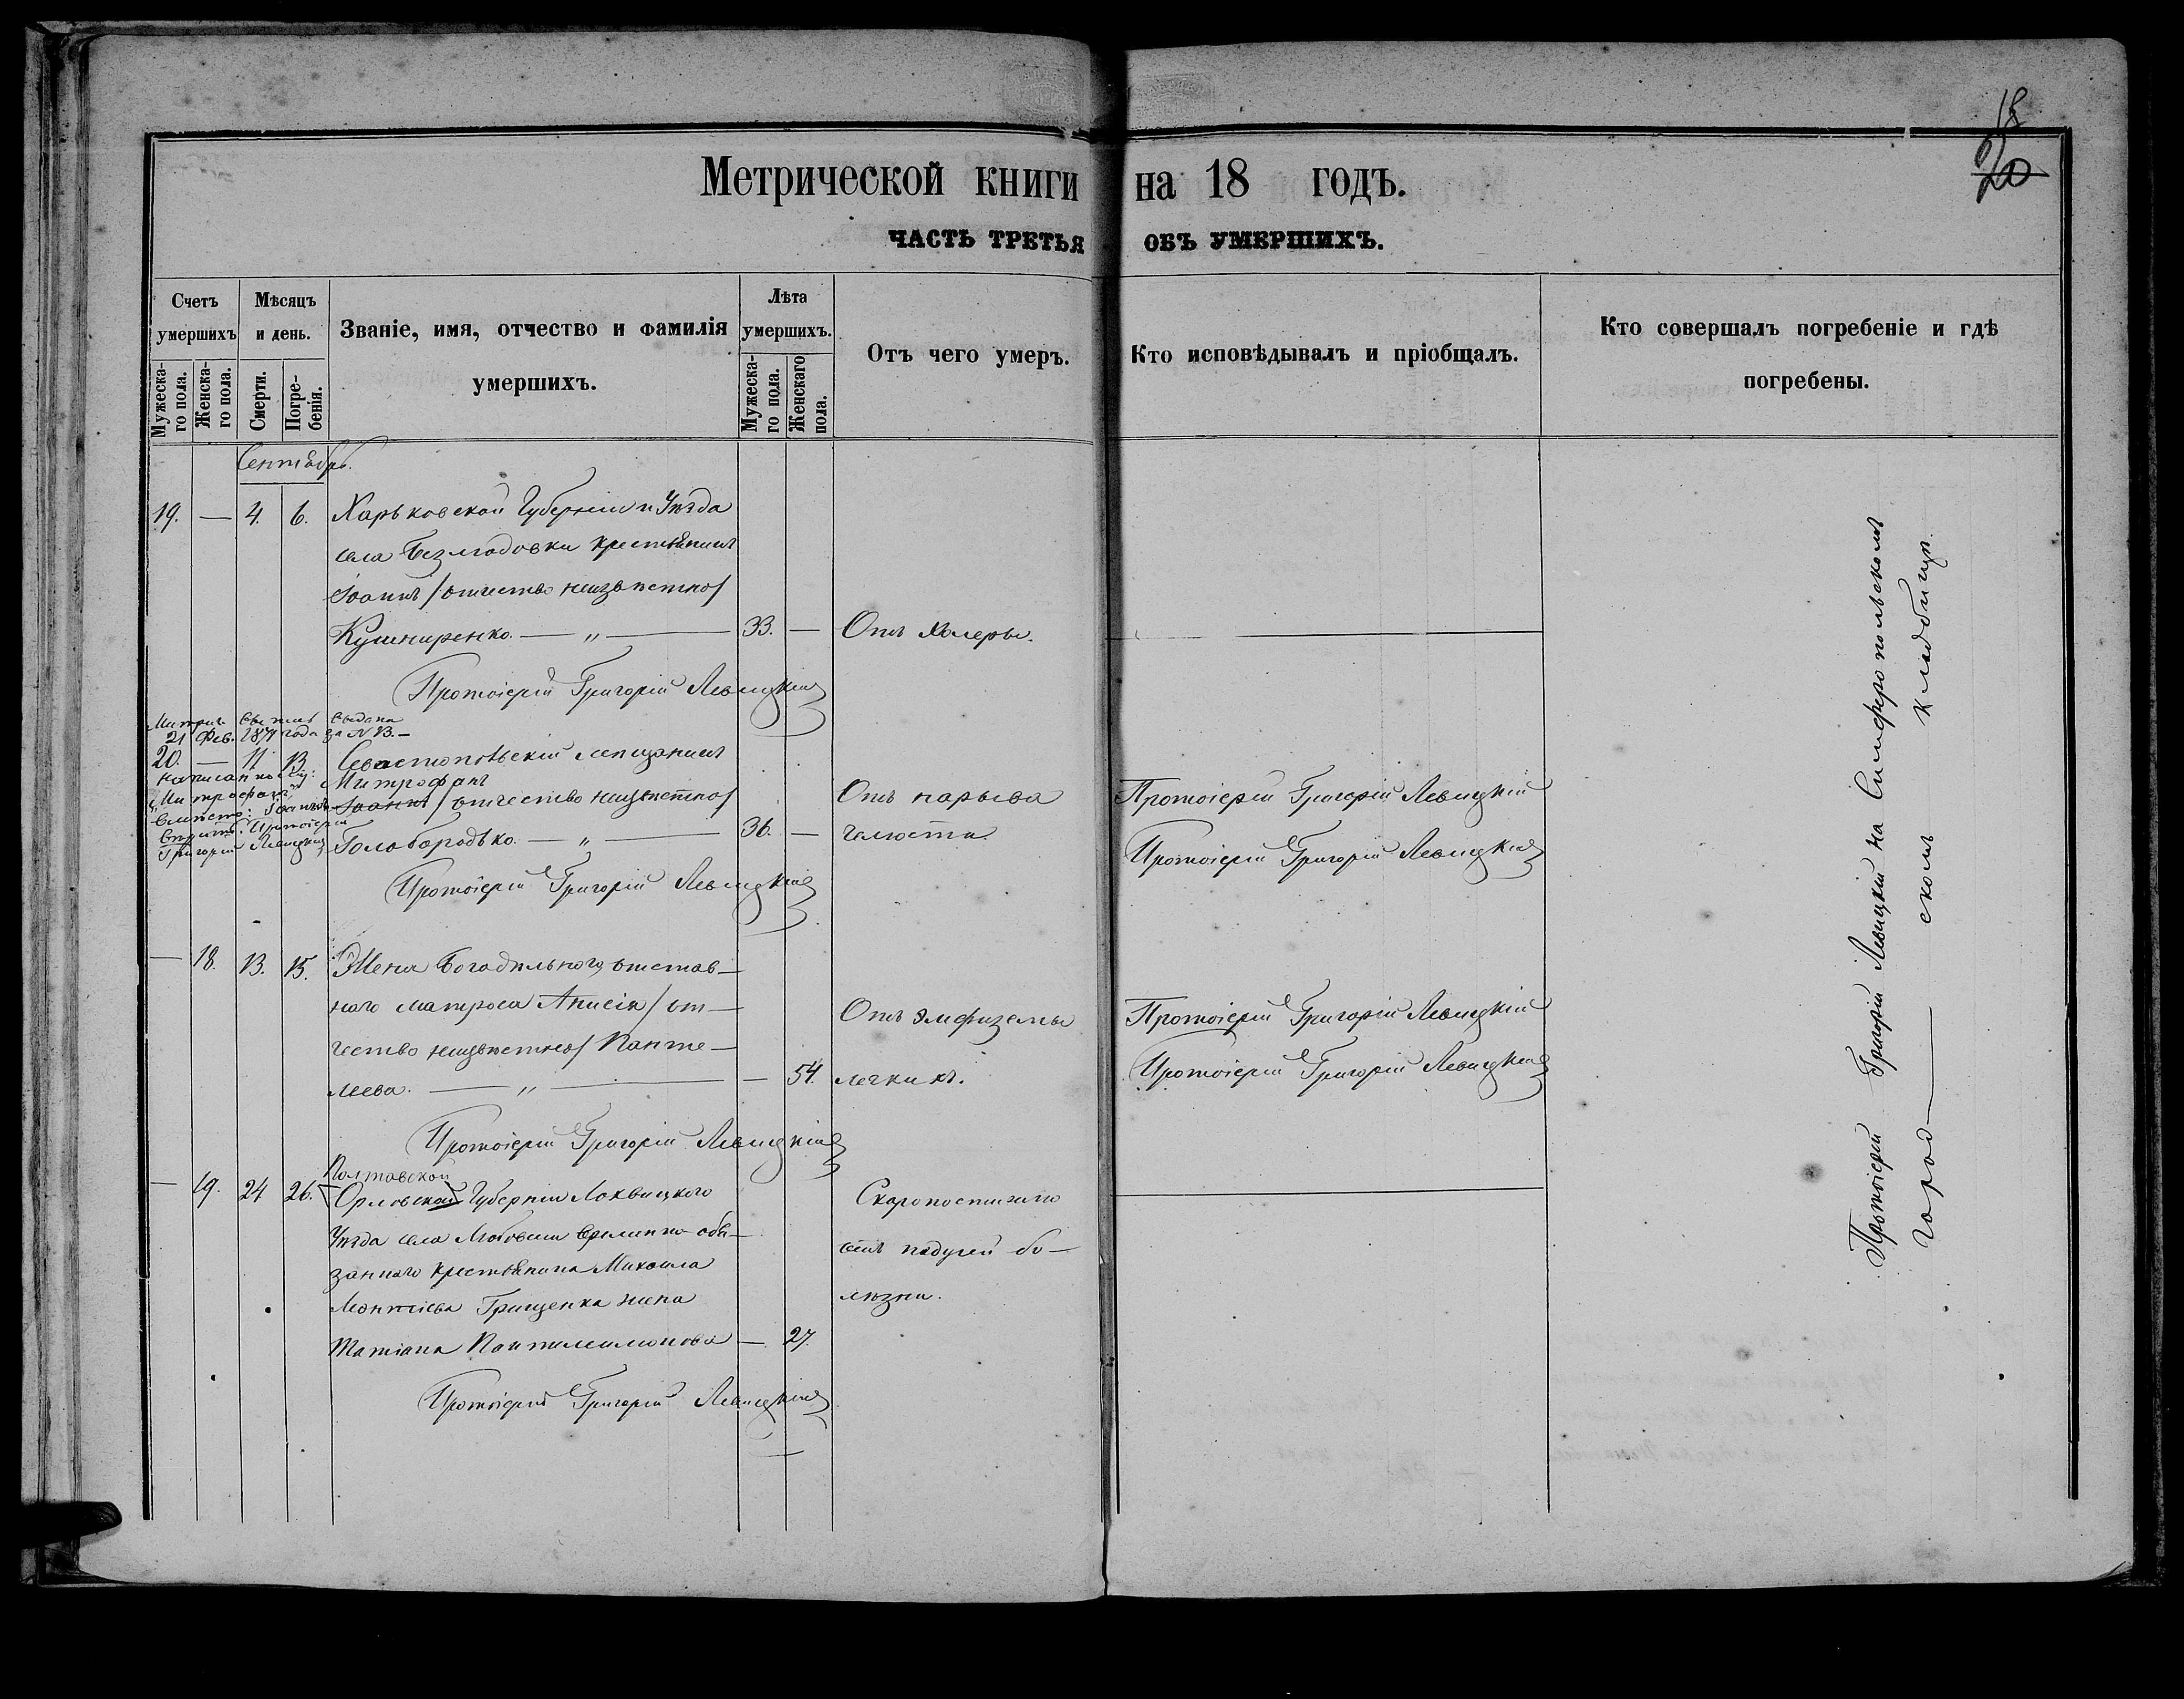 18
20
Метрической книги на 18 годъ.
ЧАСТЬ ТРЕТЬЯ ОБЪ УМЕРШИХЪ.
Счетъ умершихъ
Мужеска-го пола.
Женска-го пола.
Мѣсяцъ и день.
Смерти.
Погре-бенія.
Званіе, имя, отчество и фамилія умершихъ.
Лѣта умершихъ.
Мужеска-го пола.
Женскаго пола.
Отъ чего умеръ.
Кто исповѣдывалъ и пріобщалъ.
Кто совершалъ погребеніе и гдѣ погребены.
Сентябрь.
19. — 4. 6. Харьковской Губерніи и Уѣзда
села Безлюдовки крестьянинъ
Іоаннъ /отчество неизвѣстно/
Кушниренко. — „ — 33. — Отъ холеры.
Протоіерей Григорій Левицкій
выдана
21 Фев. 1871 года за N 13.—
20. — 11 13 Севастопольскій мещанинъ
Митрофанъ
Іоаннъ /отчество неизвѣстно/ Отъ нарыва Протоіерей Григорій Левицкій
Голобородько. — „ — 36. — челюсти. Протоіерей Григорій Левицкій
написанному:
„Митрофанъ“
вмѣсто: Іоаннъ
вѣрить. Протоіерей
Григорій Левицкій
Протоіерей Григорій Левицкій
— 18. 13. 15. Жена богадѣльного, отстав—
ного матроса Анисія /от—
чество неизвѣстно/ Панте—
леева. — „ — — 54.
Отъ эмфиземы
легкихъ.
Протоіерей Григорій Левицкій
Протоіерей Григорій Левицкій
Протоіерей Григорій Левицкій
Полтавской
— 19. 24 26. Орловской Губерніи Лохвицкого
Уѣзда села временно-обя—
занного крестьянина Михаила
Грищенка жена
Татіана Пантилимонова — 27.
Скоропостижно
отъ падучей бо—
лѣзни.
Протоіерей Григорій Левицкій
Протоіерей Григорій Левицкій на Симферопольскомъ
город— скомъ кладбищѣ.